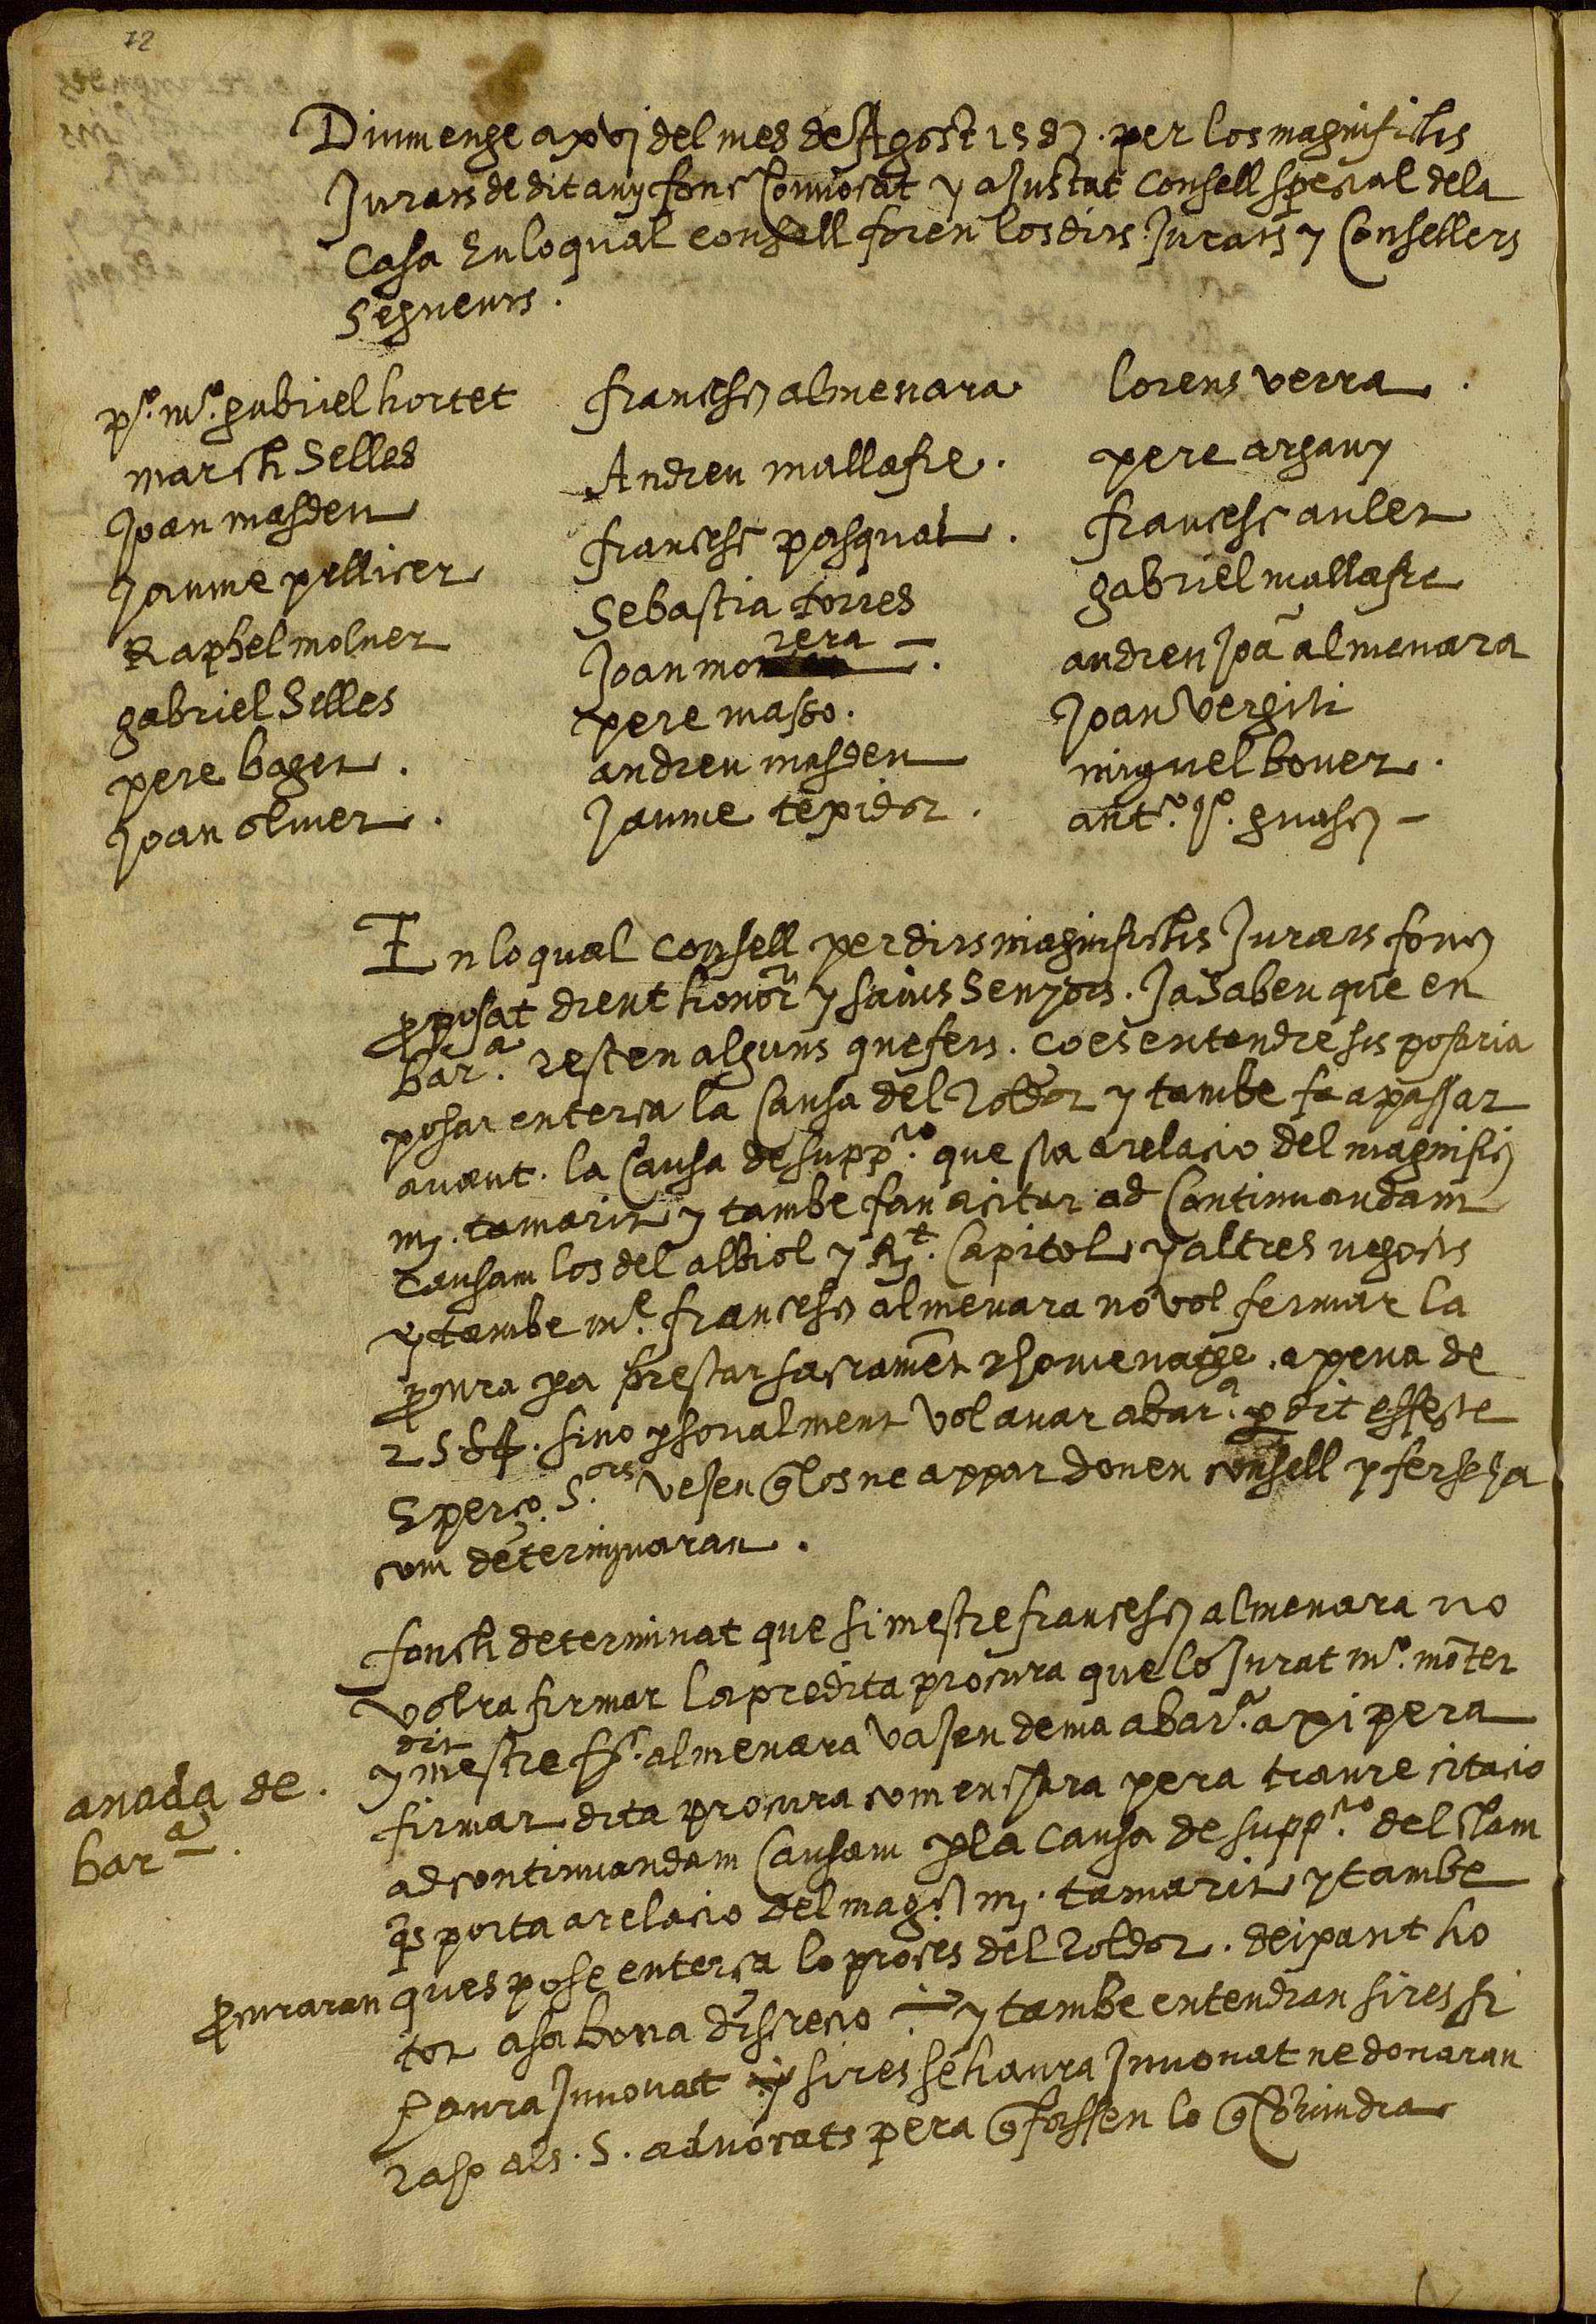 72
Diumenge a xvj del mes de Agost 1587. per los magnifichs
Jurats de dit any fonc Convocat y aJustat Consell special dela
Casa En lo qual consell foren los dits Jurats y Consellers
Seguents.
pº. mº. gabriel hortet
march Selles
Joan masdeu
Jaume pellicer
Raphel molner
gabriel Selles
pere baget.
Joan oliver.
francesch almenara
Andreu mallafre.
francesc pasqual.
Sebastia torres
rera
Joan mo
pere masso.
andreu masdeu
Jaume texidor.
lorens verra.
pere argany
francesc aulet
gabriel mallafre
andreu Joã almenara
Joan Vergili
miquel bover.
antº. guasch
En lo qual Consell per dits magnifichs Jurats fonch
proposat dient honorˢ y savis Senyors. Ja Saben que en
barª. resten alguns quefers. ço es entendre sis posaria
posar en terça la Causa del Roldor y tambe fa a passar
avant. la Causa de suppºº. que sta a relacio del magnifich
mj. tamarit y tambe fan a citar ad Continuandam
causam los del albiol y Rᵗ. Capitol y altres negocis
y tambe mᵉ. francesch almenara no vol fermar la
procura pa prestar sacrament y homenatge. a pena de
sino personalment vol anar a barª. per dit effecte
E perço S.ors veJen q los ne appar donen consell y ferse ha
com determinaran.
fonch determinat que si mestre francesch almenara no
volra firmar la predita procura que lo Jurat mº. motet
dit
y mestre fr. almenara vaJen dema a barª. axi pera
firmar dita procura com encara pera traure citacio
ad continuandam Causam per la Causa de suppºº. del clam
qs porta a relacio del magch mj. tamarit y tambe
procuraran ques pose en terça lo proces del Roldor. deixant ho
tot a sa bona discrecio y tambe entendran si res si
haura Jnnovat y si res se haura Jnnovat ne donaran
raho als. S. advocats pera q fassen lo q convindra
anada de.
barª.